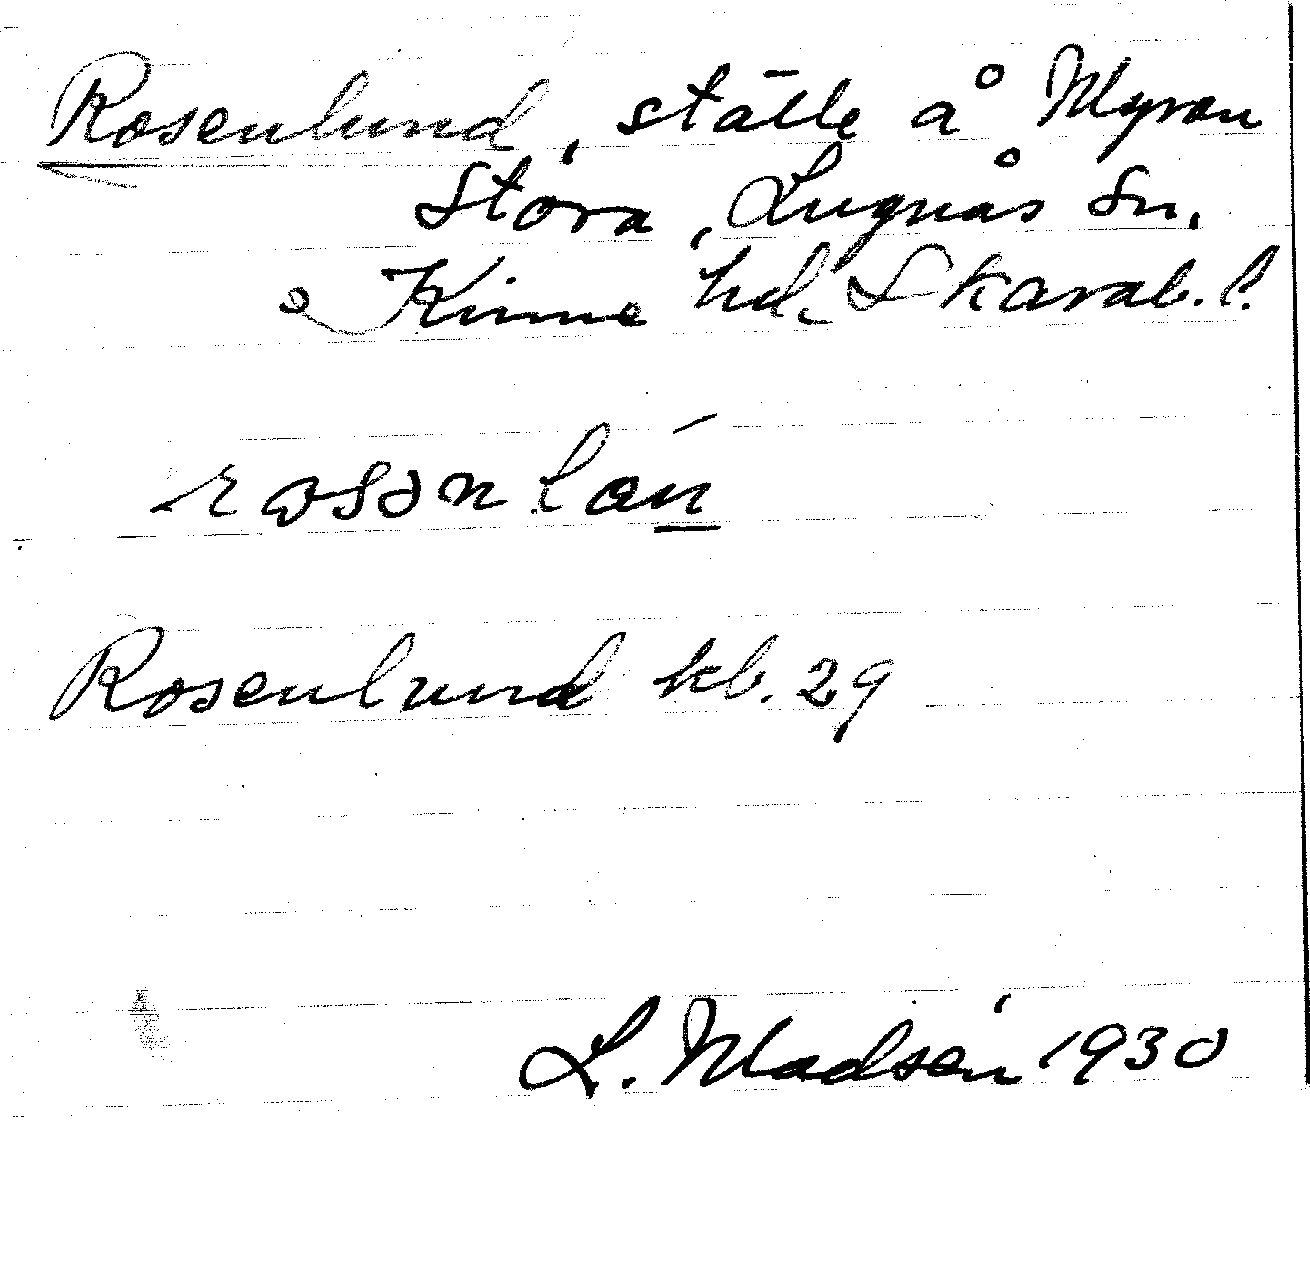 Rosenlund, ställe å Myran
Stora, Lugnås Sn.
Kinne hd. Skarab. l.
Rosenlund kb. 29
L. Madsén 1930